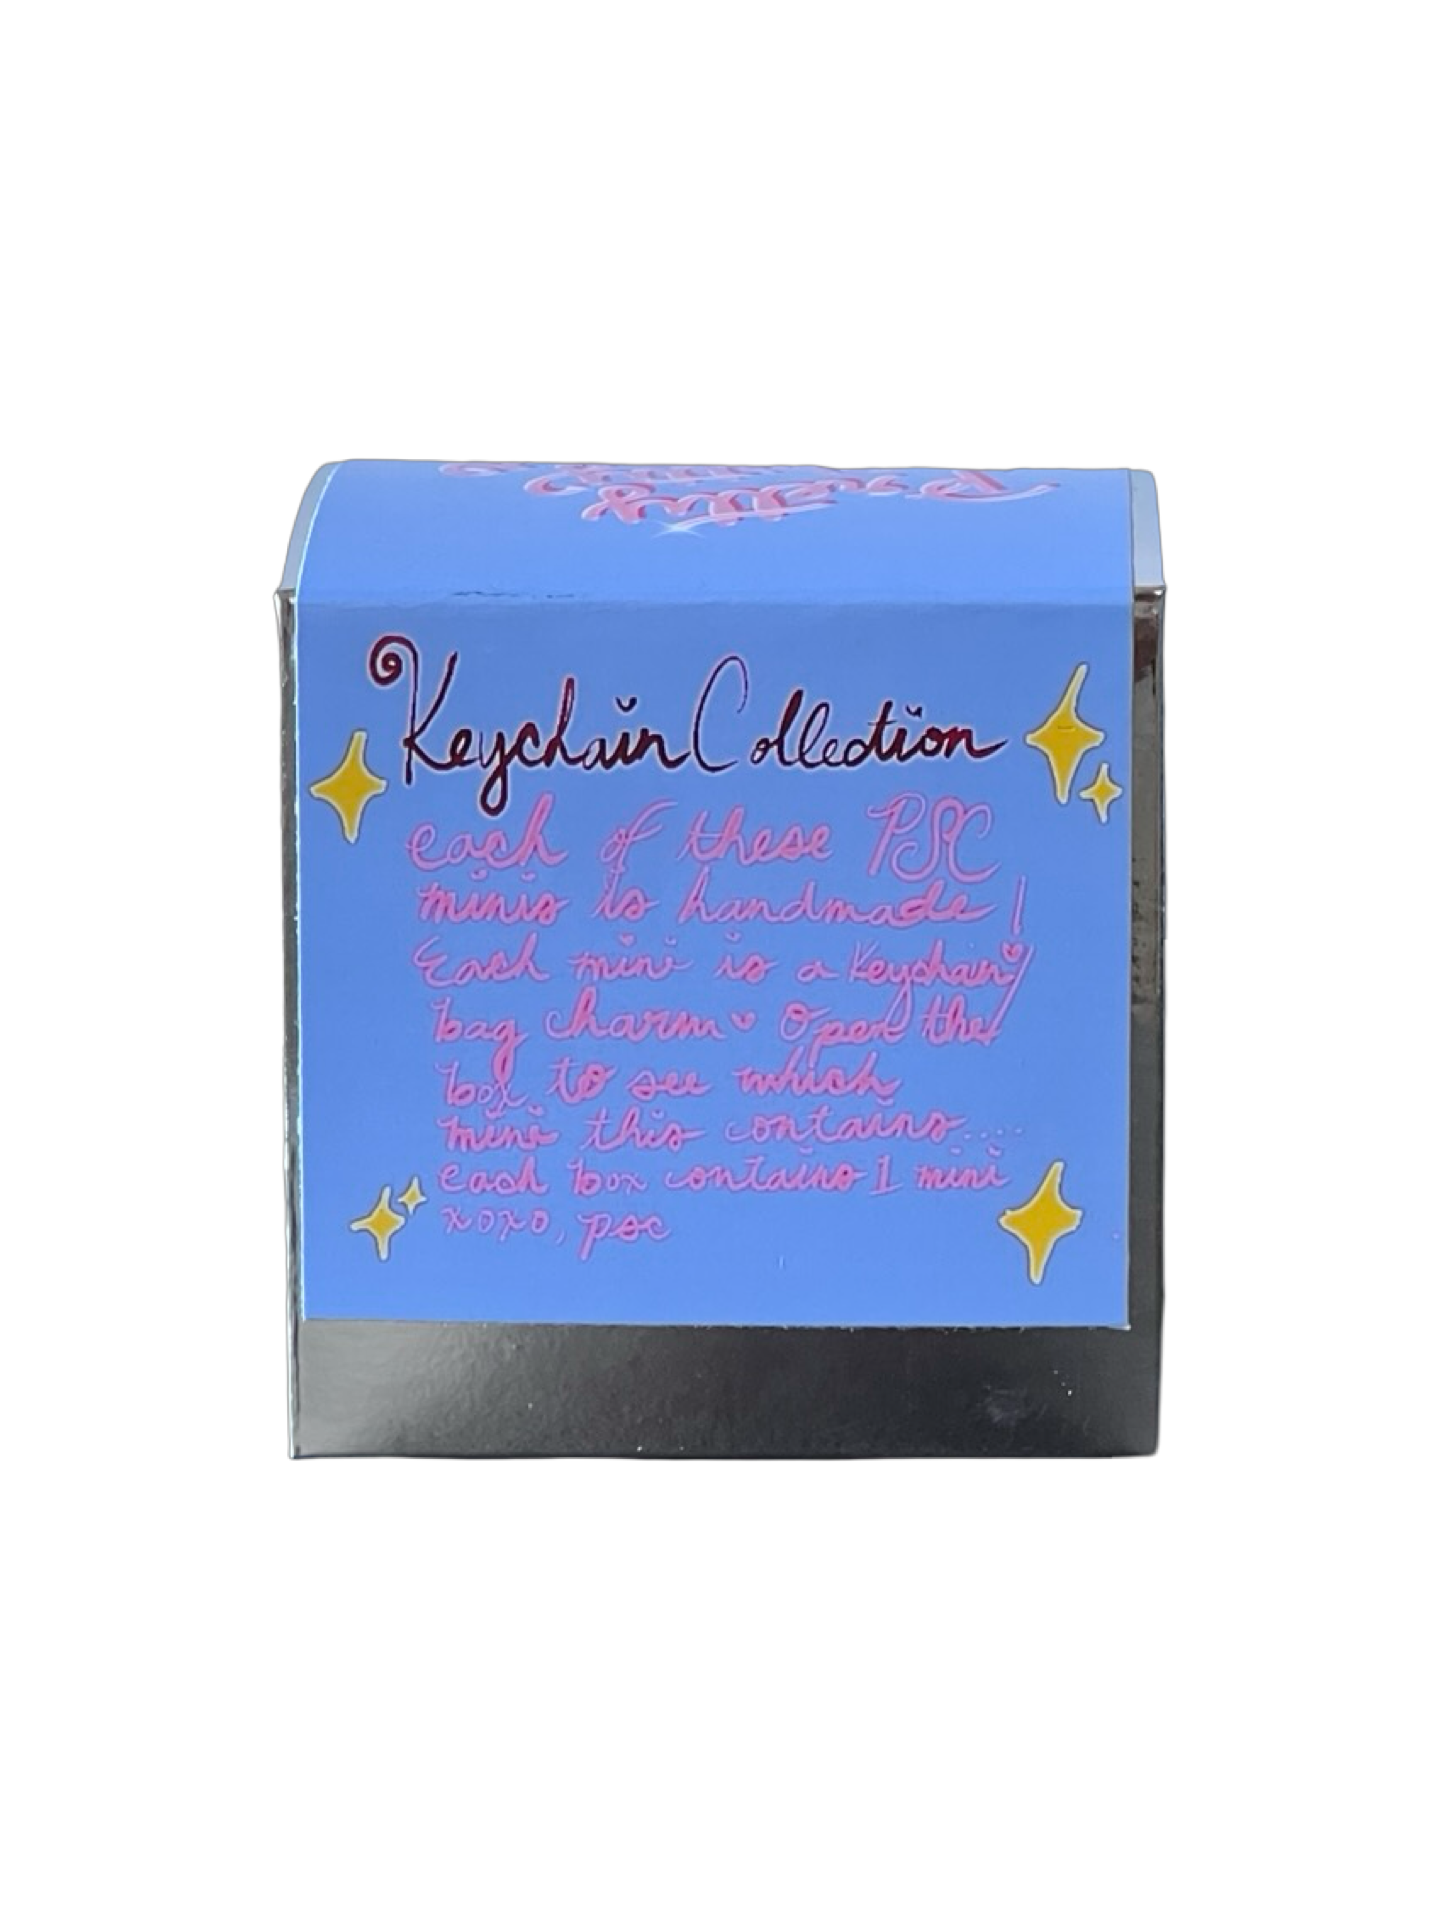 Pretty
Keychain Collection
each of these PSC
minis is handmade!
Each mini is a Keychain/
bag charm Open the
box to see which
mini this contains....
each box contains 1 mini
xoxo, psc